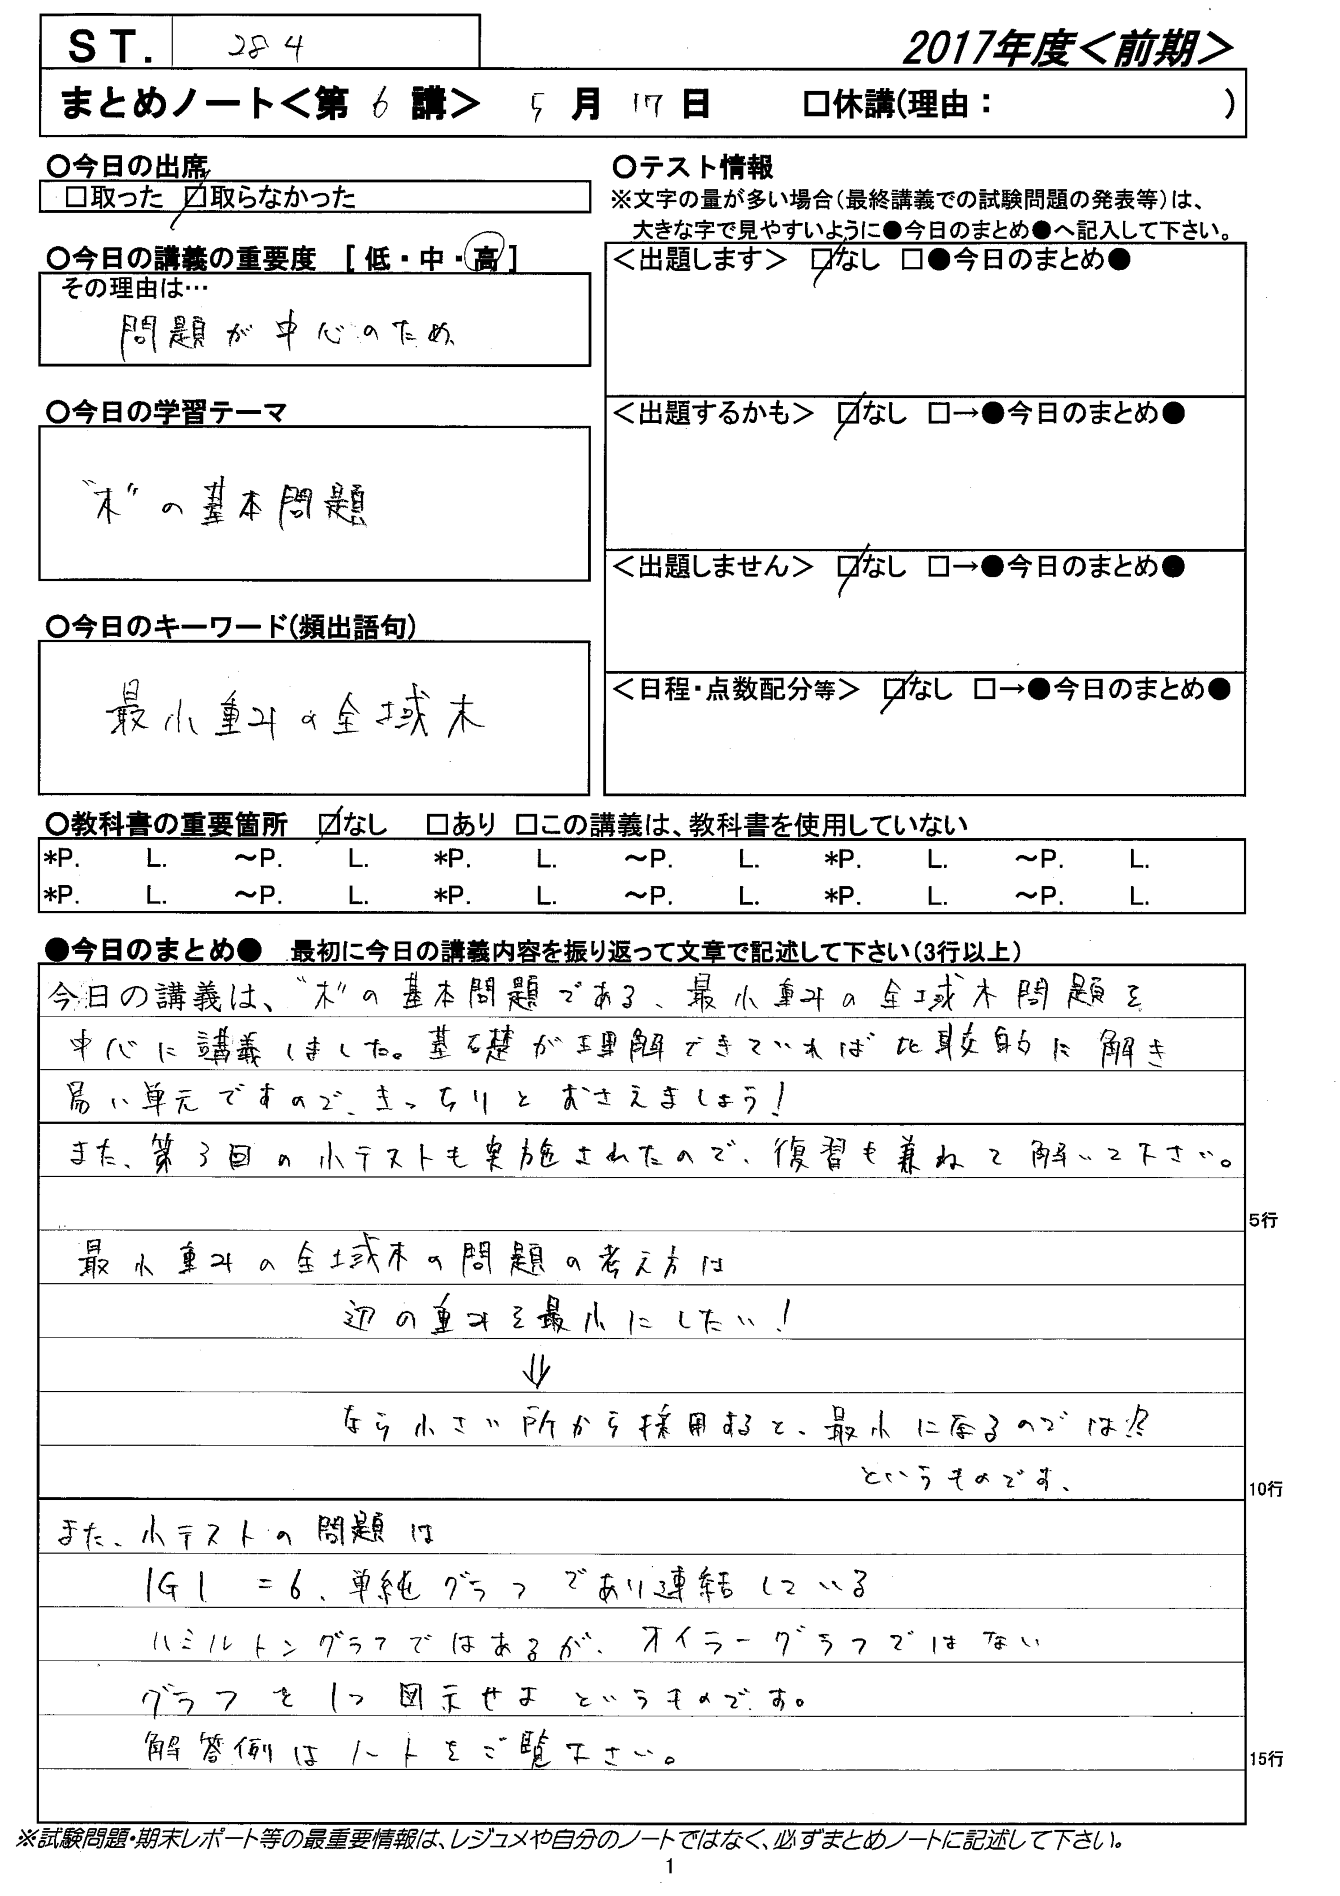 ST. 284
2017年度＜前期＞
まとめノート＜第 6 講＞ 5 月 17 日 □休講(理由： )
○今日の出席
□取った ☑取らなかった
○今日の講義の重要度 [ 低・中・高 ]
その理由は…
問題が中心のため
○今日の学習テーマ
"木"の基本問題
○今日のキーワード(頻出語句)
最小重みの全域木
○テスト情報
※文字の量が多い場合(最終講義での試験問題の発表等)は、
大きな字で見やすいように●今日のまとめ●へ記入して下さい。
＜出題します＞ ☑なし □●今日のまとめ●
＜出題するかも＞ ☑なし □→●今日のまとめ●
＜出題しません＞ ☑なし □→●今日のまとめ●
＜日程・点数配分等＞ ☑なし □→●今日のまとめ●
○教科書の重要箇所 ☑なし □あり □この講義は、教科書を使用していない
*P. L. ～P. L. *P. L. ～P. L. *P. L. ～P. L.
*P. L. ～P. L. *P. L. ～P. L. *P. L. ～P. L.
●今日のまとめ● 最初に今日の講義内容を振り返って文章で記述して下さい(3行以上)
今日の講義は、"木"の基本問題である、最小重みの全域木問題を
中心に講義しました。基礎が理解できていれば比較的に解き
易い単元ですので、きっちりとおさえましょう!
また、第3回の小テストも実施されたので、復習も兼ねて解いて下さい。
5行
最小重みの全域木の問題の考え方は
辺の重みを最小にしたい!
⇓
なら小さい所から採用すると、最小に座るのでは!?
というものです、
10行
また、小テストの問題は
|G| =6、単純グラフであり連結している
ハミルトングラフではあるが、オイラーグラフではない
グラフを1つ図示せよというものです。
解答例はノートをご覧下さい。
15行
※試験問題・期末レポート等の最重要情報は、レジュメや自分のノートではなく、必ずまとめノートに記述して下さい。
1